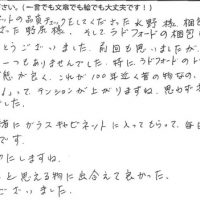 さい。(一言でも文章でも絵でも大丈夫です!)
ットの品質チェックをしてくださった水野様、梱包
さった野原様、そしてラドフォードの梱包
とうございました。前回も思いましたが、
一つもありませんでした。特にラドフォードのト
態が良く、これが100年近く昔の物なの
」って、テンションが上がりますね。思わず
した。
緒にガラスキャビネットに入ってもらって、毎日
です。
りにしますね。
と思える物に出会えて良かった。
ございました。